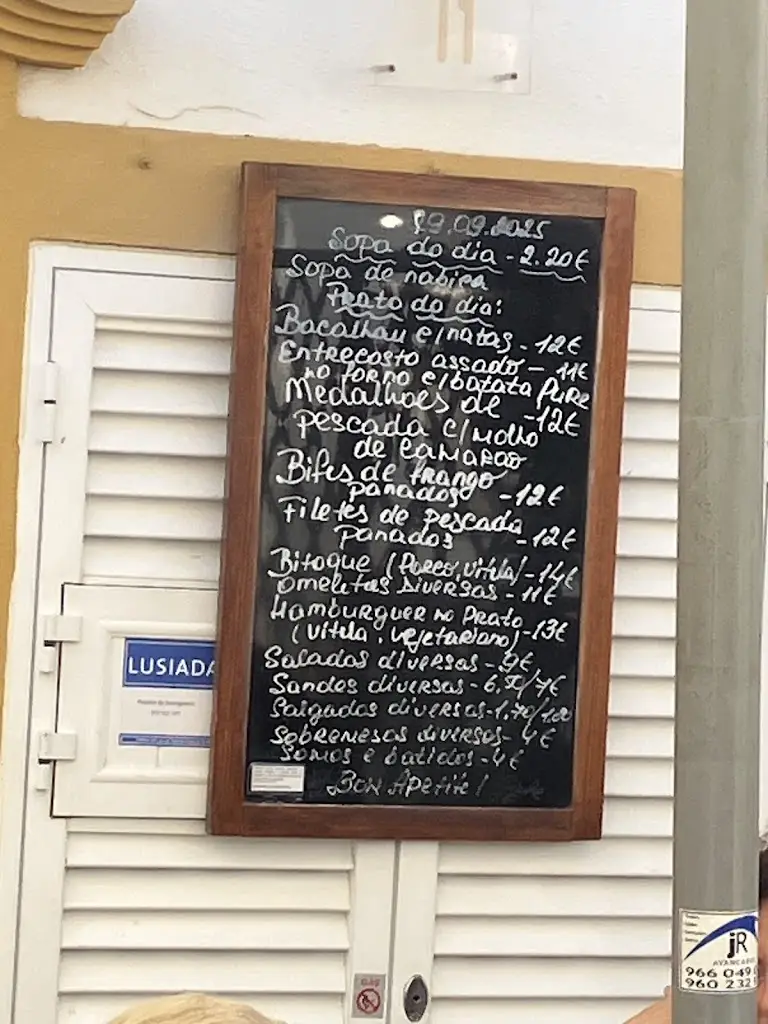 29.09.2025
Sopa do dia - 2.20€
Sopa de nabiça
Prato do dia:
Bacalhau c/natas - 12€
Entrecosto assado - 11€
no forno c/batata pure
Medalhoes de - 12€
pescada c/molho
de camarao
Bifes de frango
panados - 12€
Filetes de pescada
panados - 12€
Bitoque (Porco, vitela) - 14€
omeletas diversas - 11€
Hamburguer no Prato - 13€
(vitela, vegetariano)
Saladas diversas - 9€
Sandes diversas - 6,50/7€
Salgados diversas - 1.70/1.80
Sobremesas diversas - 4€
Sumos e batidos - 4€
Bon Apetite!
LUSIADA
GÁS
jR
966 049
960 232